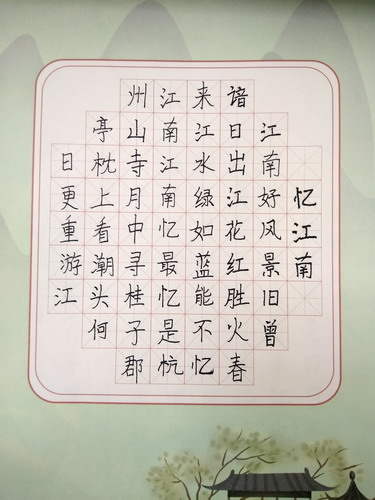 忆江南
江南好风景旧曾
谙日出江花红胜火春
来江水绿如蓝能不忆
江南江南忆最忆是杭
州山寺月中寻桂子郡
亭枕上看潮头何
日更重游江